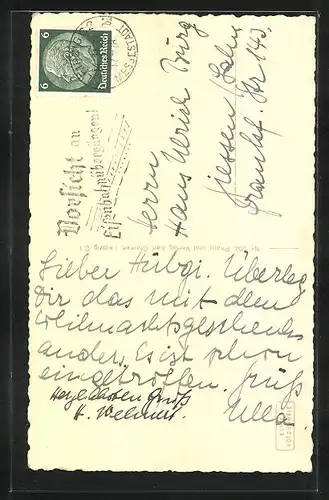 6 Deutsches Reich 6
Vorsicht an
Eisenbahnübergängen!
Herrn
Hans Ulrich Burg
Giessen/Lahn
Frankf. Str 143.
Lieber Hübgi. Überleg
Dir das mit dem
Weihnachtsgeschenk
anders, Es ist schon
eingetroffen. Gruß
Ulla
Herzlichsten Gruß
H. Helmut.